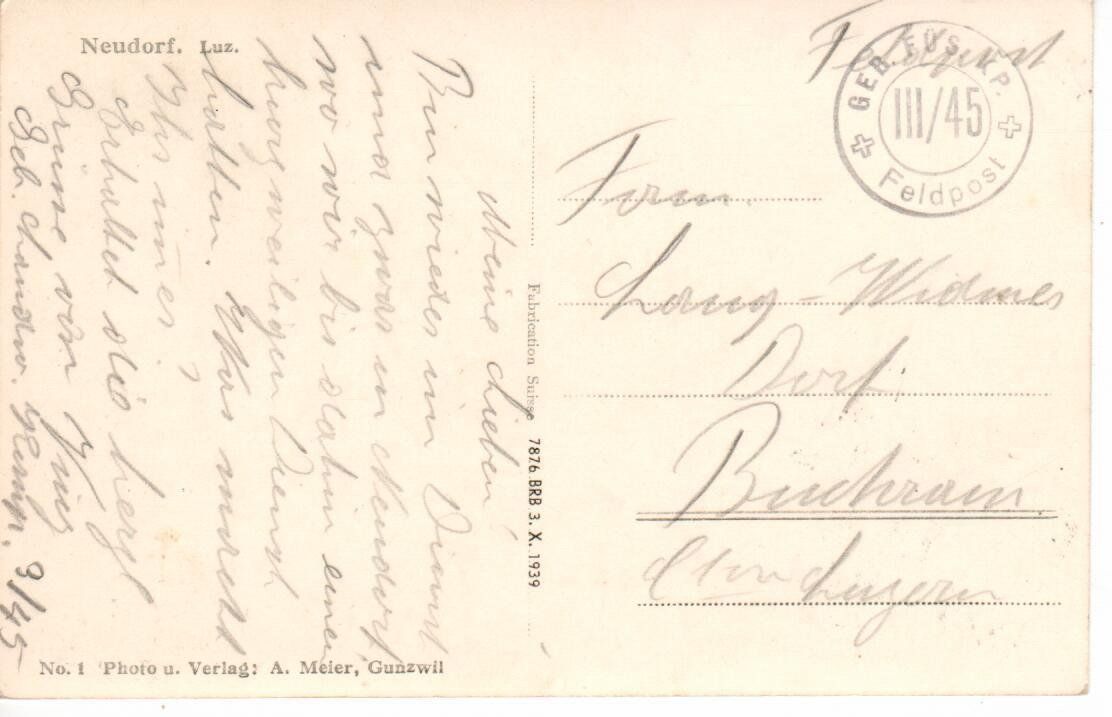 Neudorf. Luz.
Meine Lieben!
Bin wieder im Dienst
und zwar in Neudorf,
wo wir bis dahin einen
langweiligen Dienst
hatten. Was macht
Ihr immer?
Erhaltet die herzl.
Grüsse von
Geb.
3/45
No. 1 Photo u. Verlag: A. Meier, Gunzwil
Fabrication Suisse 7876 BRB 3. X. 1939
Feldpost
GEB. FÜS. KP.
III/45
Feldpost
Fam.
Lang-Widmer
Dorf
Buchrain
Luzern